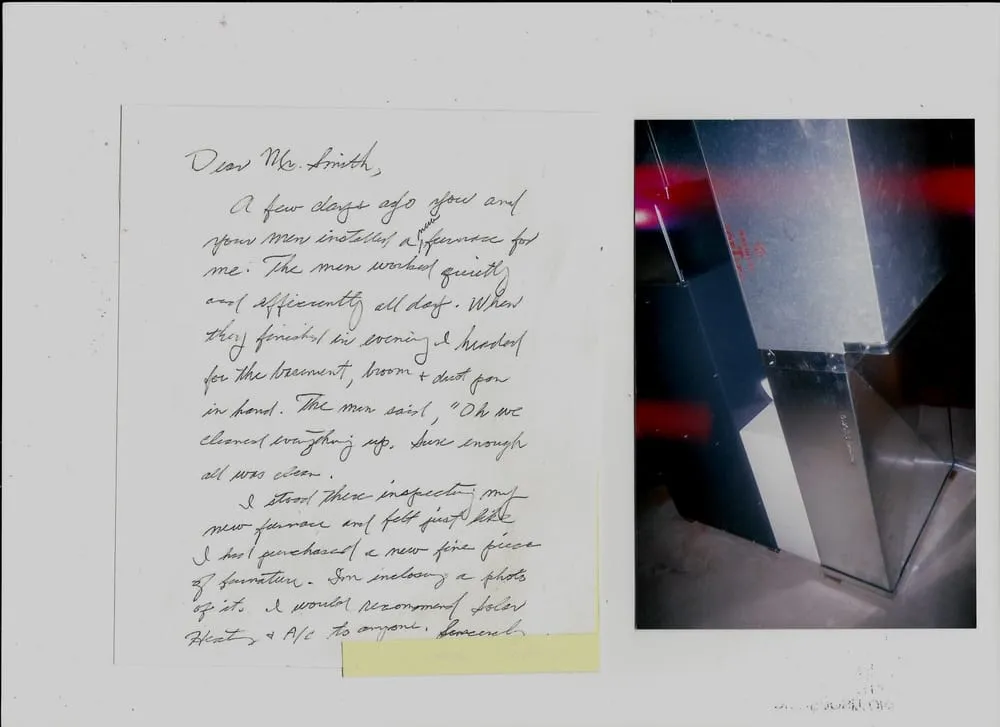 Dear Mr. Smith,
A few days ago you and
your men installed a new furnace for
me. The men worked quietly
and efficiently all day. When
they finished in evening I headed
for the basement, broom + dust pan
in hand. The men said, "Oh we
cleaned everything up. Sure enough
all was clean.
I stood there inspecting my
new furnace and felt just like
I had purchased a new fine piece
of furnature. I'm inclosing a photo
of it. I would recommend Solar
Heating & A/C to anyone. Sincerely